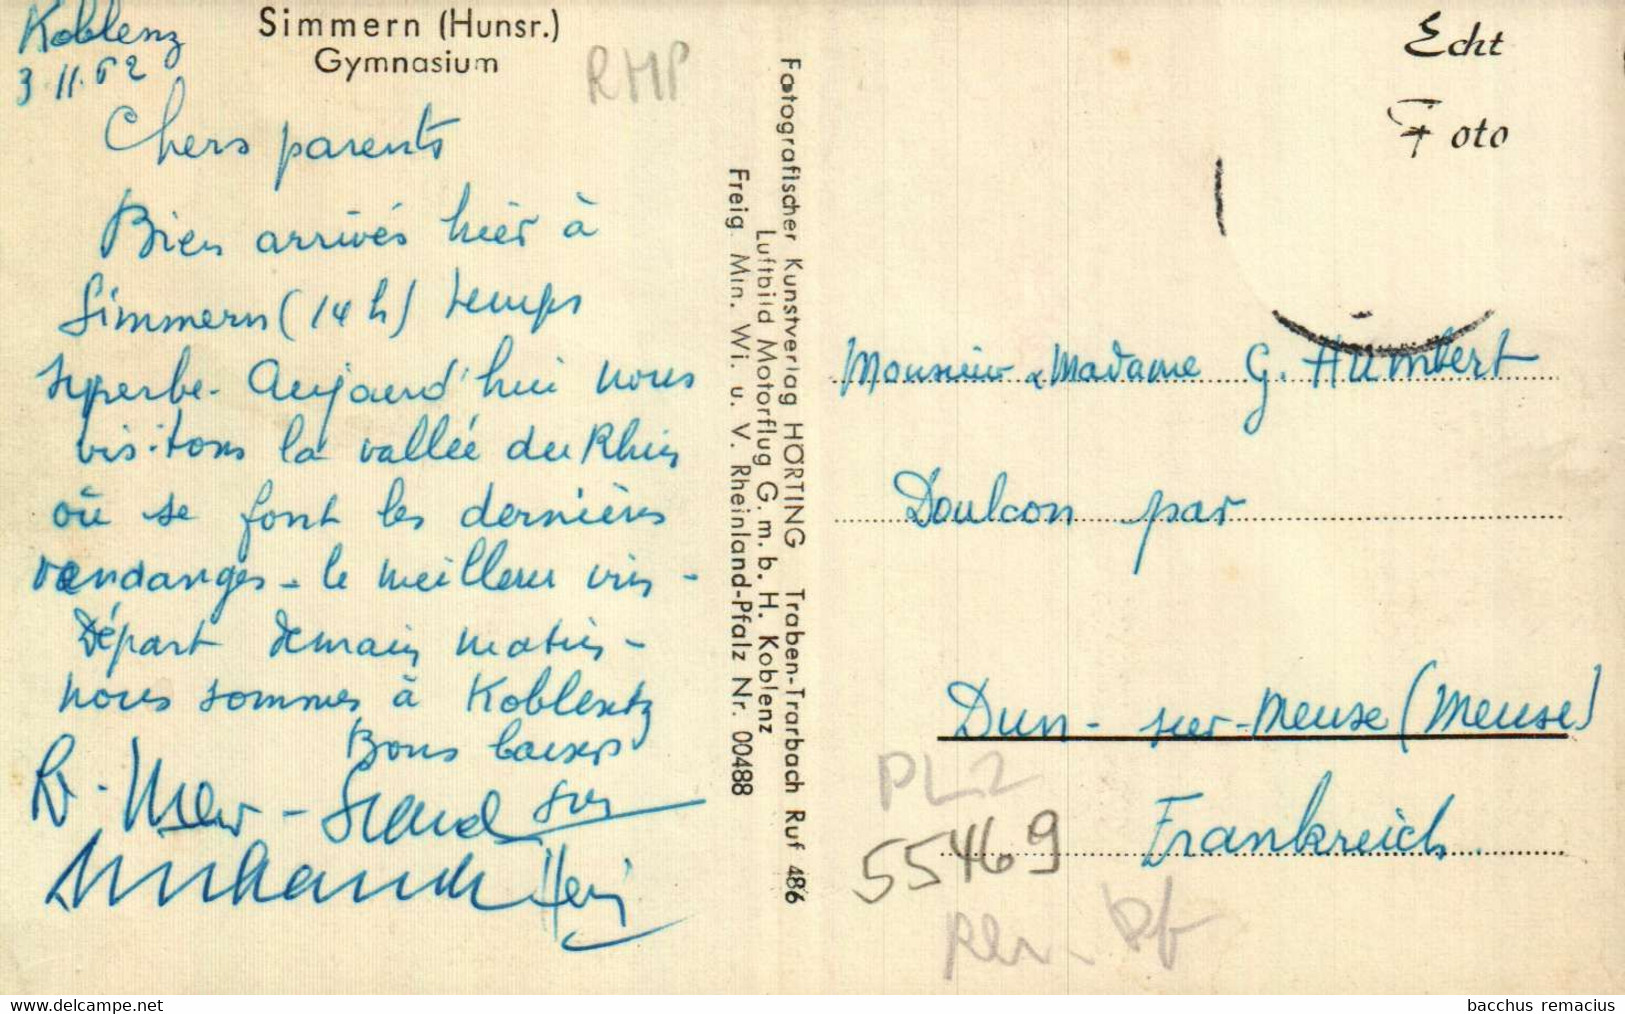 Koblenz
3.11.62
Simmern (Hunsr.)
Gymnasium
RMP
Chers parents
Bien arrivés hier à
Simmern (14 h) temps
superbe. Aujourd'hui nous
visitons la vallée du Rhin
où se font les dernières
vendanges - le meilleur vin -
Départ demain matin -
nous sommes à Koblentz
Bons baisers
Fotografischer Kunstverlag HÖRTING Traben-Trarbach Ruf 486
Luftbild Motorflug G. m. b. H. Koblenz
Freig. Min. Wi. u. V. Rheinland-Pfalz Nr. 00488
Echt
Foto
Monsieur & Madame G. Humbert
Doulcon par
Dun-sur-Meuse (Meuse)
Frankreich
PL2
55469
bacchus-remacius.delcampe.net
bacchus remacius